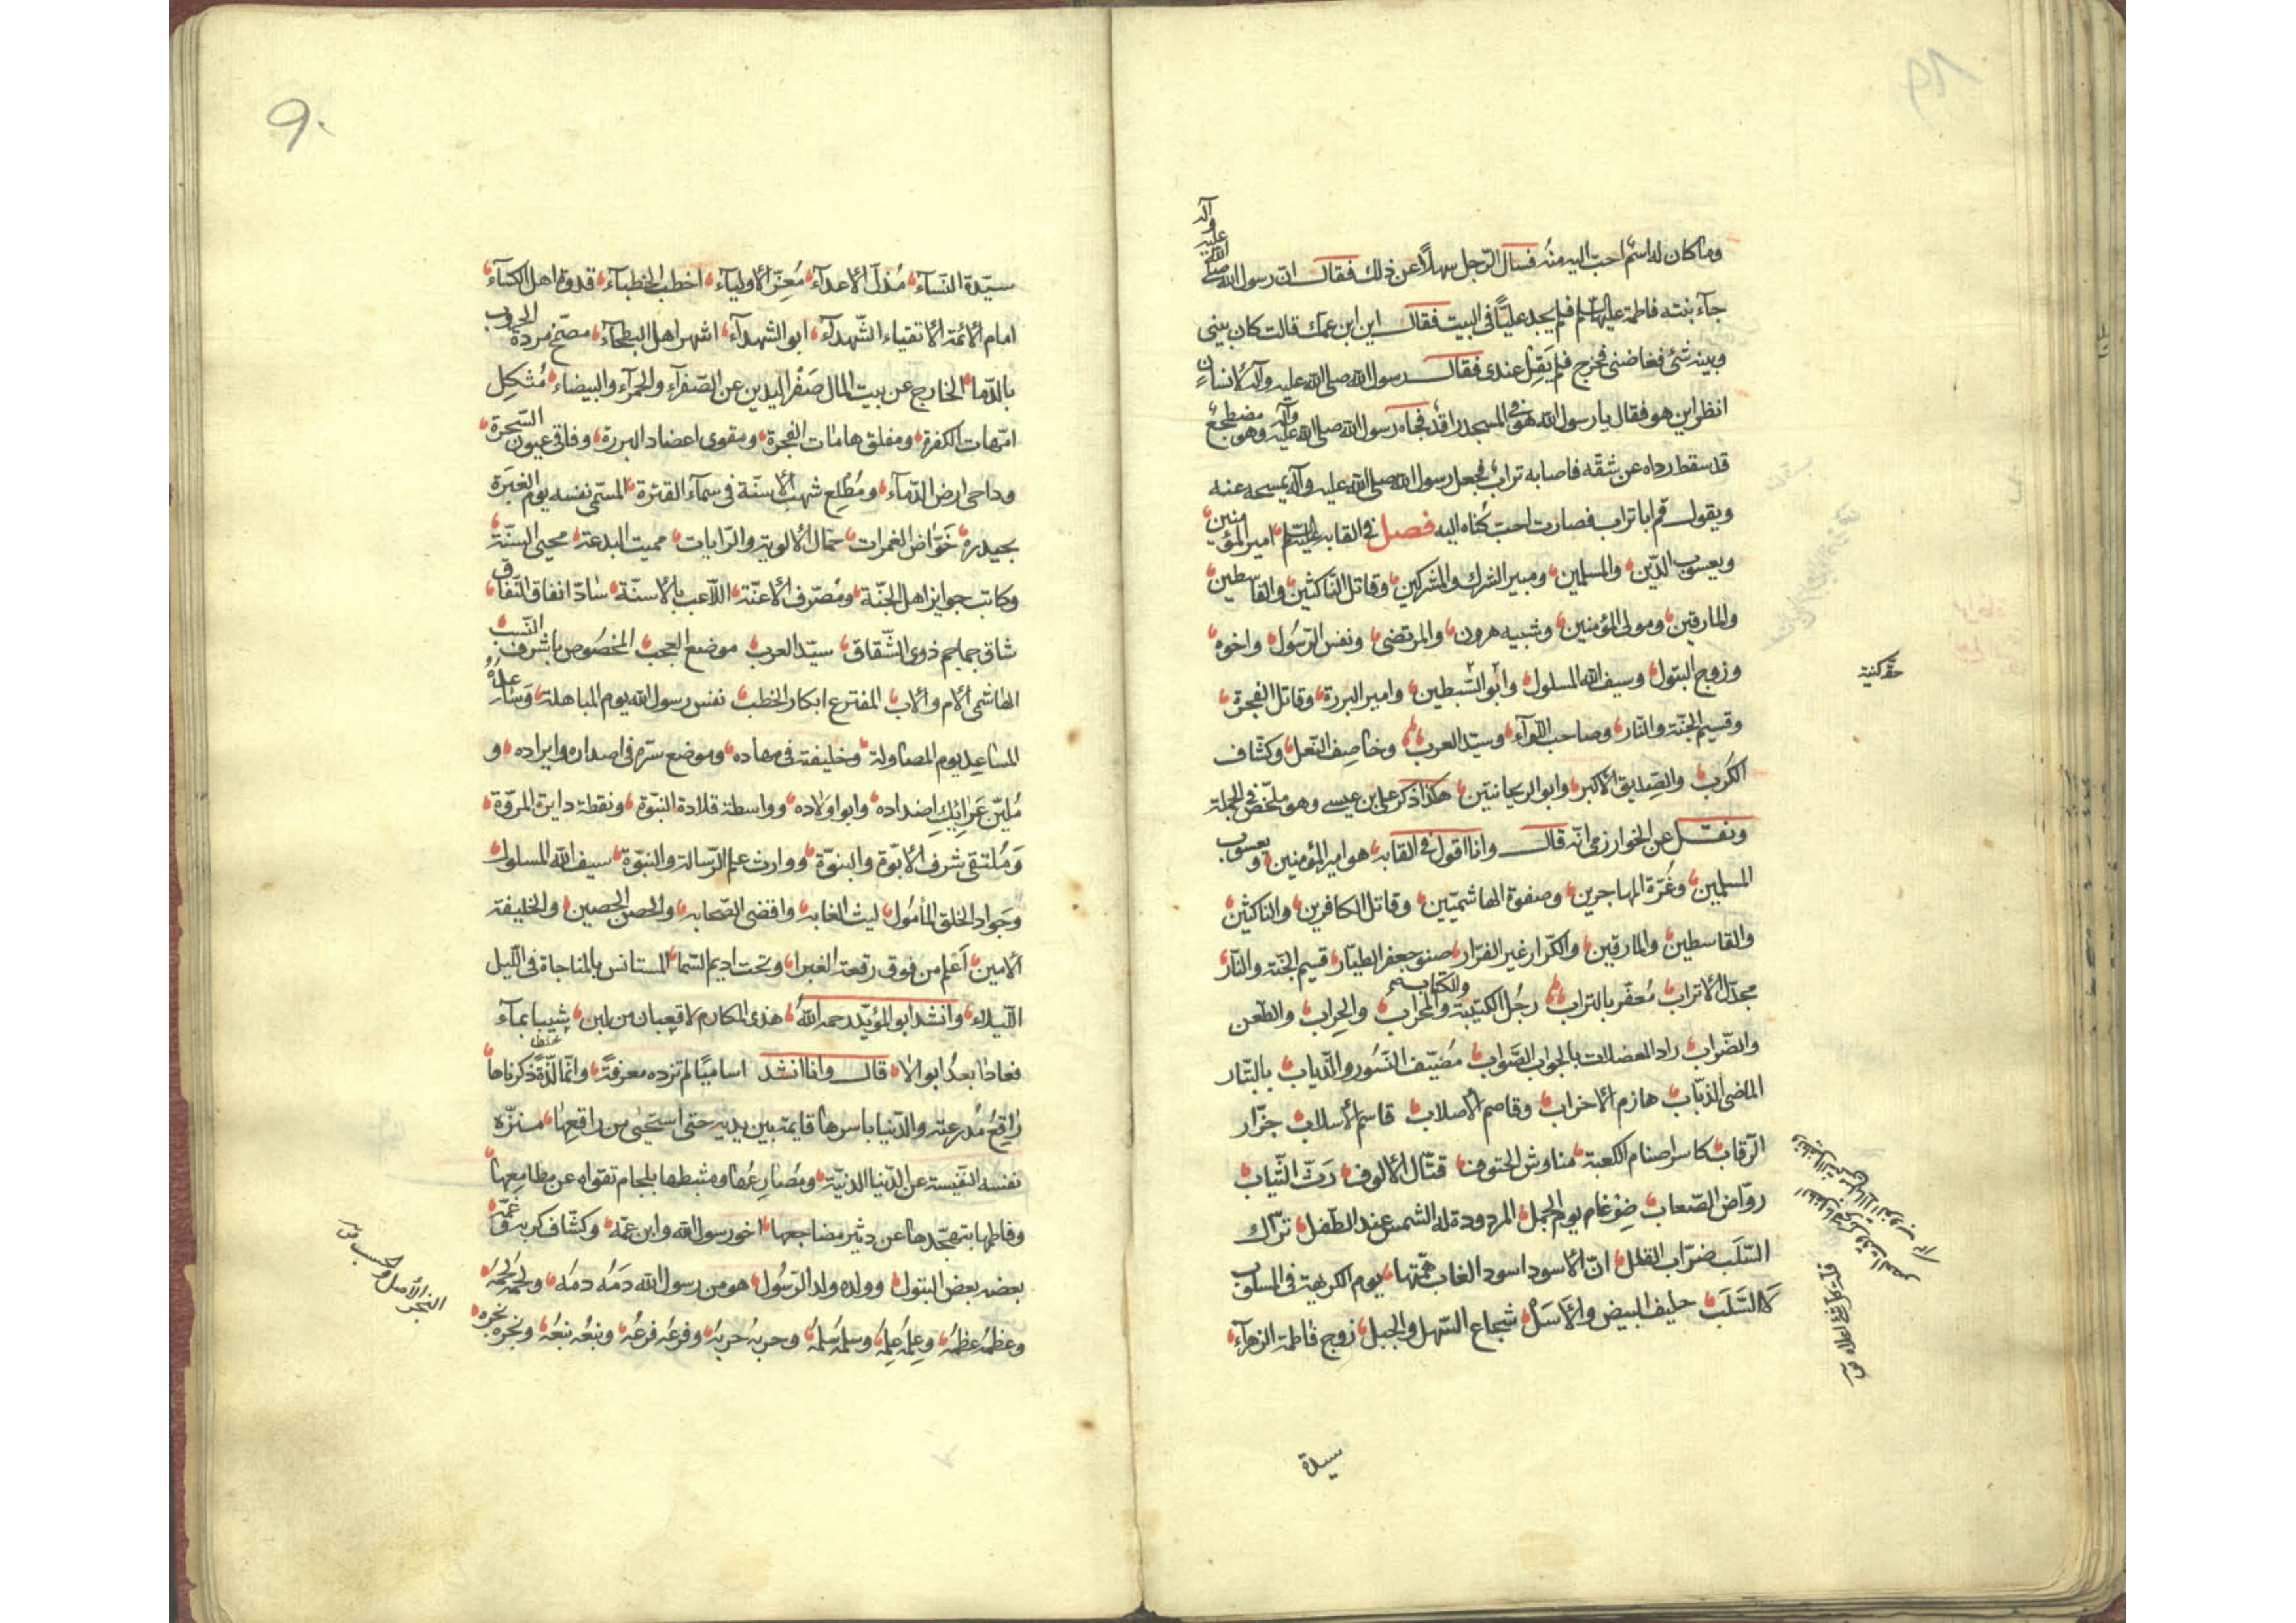 وما كان له اسم احب اليه منه فسال الرجل سهلاً عن ذلك فقال ان رسول الله صلى الله عليه وآله
جآء بنته فاطمة عليها السلم فلم يجد عليّاً فى البيت فقال اين ابن عمك قالت كان بينى
وبينه شئ فغاضبنى فخرج فلم يَقِل عندى فقال رسول الله صلى الله عليه وآله لانسانٍ
انظر اين هو فقال يا رسول الله هو فى المسجد راقد فجاه رسول الله صلى الله عليه وآله وهو مضطجع
قد سقط رداه عن شقه فاصابه تراب فجعل رسول الله صلى الله عليه وآله يمسحه عنه
ويقول قم ابا تراب فصارت احب كُناه اليه فصل فى القابه عليه السلم امير المؤمنين
ويعسوب الدّين والمسلمين ومبير الشرك والمشركين وقاتل الناكثين والقاسطين
والمارقين ومولى المؤمنين وشبيه هرون والمرتضى ونفس الرّسُول واخوه
وزوج البتول وسيف الله المسلول وابو السّبطين وامير البررة وقاتل الفجرة
وقسيم الجنّة والنّار وصاحب اللوآء وسيّد العرب وخاصِف النعل وكشّاف
الكُرب والصّديق الاكبر وابو الريحانتين هكذا ذكر على بن عيسى وهو ملخّص فى الجملة
ونقل عن الخوارزمى انّه قال وانا اقول فى القابه هو امير المؤمنين ويعسوب
المسلمين وغُرّة المهاجرين وصفوة الهاشميّين وقاتل الكافرين والناكثين
والقاسطين والمارقين والكرّار غير الفرّار صنو جعفر الطيّار قسيم الجنّة والنّار
مجدّل الاتراب مُعفّر بالتراب رجُل الكتيبة والكتابة والمحراب والحِراب والطّعن
والضّراب راد المعضلات بالجواب الصّواب مُضيّف النّسُور والذّياب بالبتّار
الماضى الذبّاب هازم الاحزاب وقاصم الاصلاب قاسم الأسلاب جزّار
الرّقاب كاسر اصنام الكعبة مناوش الحتوف قتّال الألوف رَثّ الثّياب
روّاض الصّعاب ضِرْغام يوم الجمل المردودة له الشمس عند الطّفل ترّاك
السّلَب ضرّاب القلل انّ الأسود اسود الغاب همّتها يوم الكريهة فى المسلوب
لا السّلَب حليف البيض والأسَل شجاع السّهل والجبل زوج فاطمة الزهرآء
سيدة
سيّدة النّسآء مُذلّ الأعدآء مُعِزّ الأوليآء اخطب الخطبآء قدوة اهل الكسآء
امام الأئمة الأتقياء الشّهدآء ابو الشهدآء اشهر اهل البطحآء مضمّخ مردة الحروب
بالدّما الخارج عن بيت المال صَفْر اليدين عن الصّفرآء والحمرآء والبيضاء مُثكِل
امّهات الكفرة ومفلق هامات الفجرة ومقوى اعضاد البررة وفاقى عيون السّحرة
وداحى ارض الدّمآء ومُطْلِع شهب الأسنّة فى سمآء القترة المسمّى نفسه يوم الغَبَرَة
بحيدرة خوّاض الغمرات حمّال الألوية والرّايات مميت البدعة محيى السنّة
وكاتب جوايز اهل الجنّة ومُصرّف الأعنّة اللّاعب بالأسنّة سادّ انفاق النّفاق
شاق جماجم ذوى الشّقاق سيّد العرب موضع العجب المخصُوص باشرف النّسب
الهاشمى الأم والأب المفترع ابكار الخطب نفس رسول الله يوم المباهلة وَساعده
المساعِد يوم المصاولة وخليفته فى مهاده وموضع سرّه فى اصداره وايراده و
مُليّن عَرايِك اضداده وابو اولاده وواسطة قلادة النبوّة ونقطة دايرة المروّة
وَمُلتقى شرف الأبوّة والبنوّة ووارث علم الرّسالة والنبوّة سيف الله المسلول
وجَواد الخلق المأمُول ليث الغابه واقضى الصّحابه والحصن الحصين والخليفة
الأمين اَعْلم من فوق رقعة الغبرا وتحت اديم السّما المستانس بالمناجاة فى اللّيل
اللّيلاء وانشد ابو المؤيّد رحمه الله هذى المكارم لا قعبان من لبن شيبا بمآء
فعادا بعدُ ابوالا قال وانا انشد اساميًا لم تزده معرفةً وانّما لذّةً ذكرناها
رَاقِعُ مُدرعته والدّنيا باسرها قايمة بين يديه حتى استحيى من راقِعِها منزّه
نفسه النّفيسة عن الدّنيا الدنيّة ومُصارعُها ومثبطها بلجام تقواه عن مطامعها
وفاطمها بتهجّدها عن دثير مضاجعها اخو رسول الله وابن عمّه وكشّاف كربه وغمّه
بعضه بعض البتول وولده ولد الرّسُول هو من رسول الله دَمُه دمُه ولحمُه لحمُه
وعظمُه عظمُه وعِلمُه عِلمُه وسلمُه سَلمُه وحربهُ حربهُ وفرعُه فرعُه ونبعُه نبعُه ونجره نجره
النجر الاصل والحسب